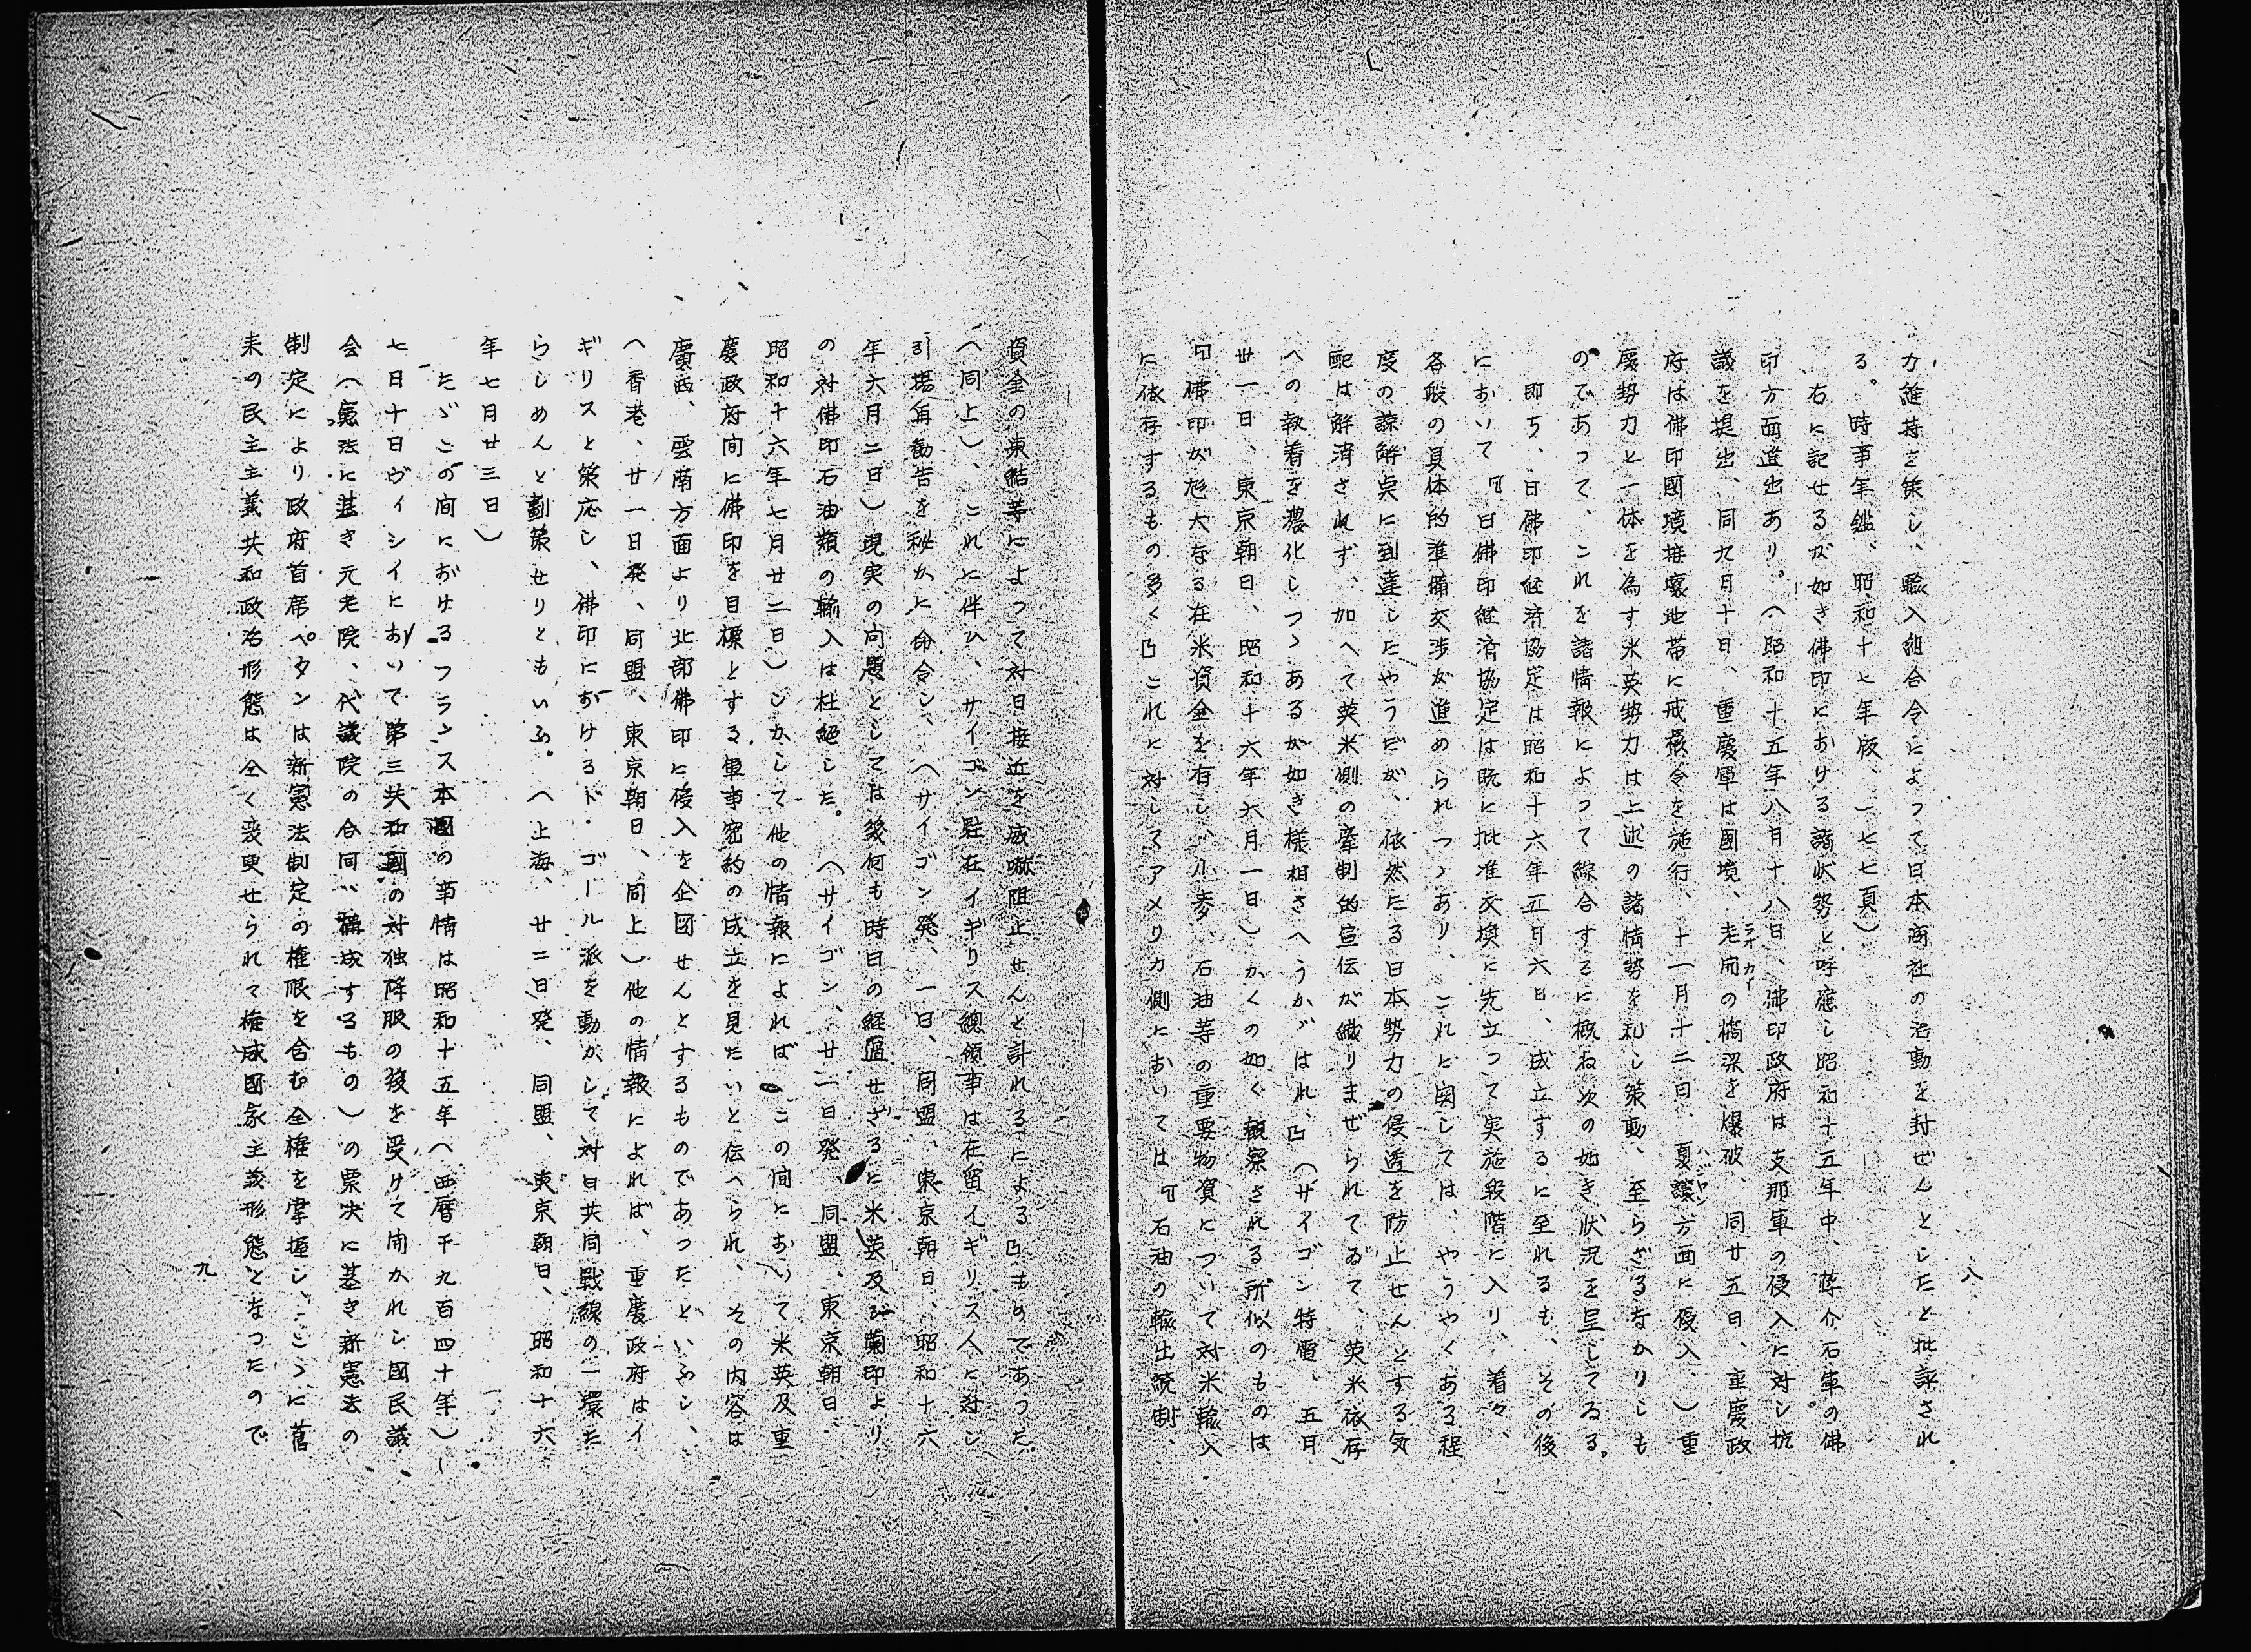 八
力維持を策し、輸入組合令によつて日本商社の活動を封ぜんとしたと批評され
る。時事年鑑、昭和十七年版、一七七頁）
右に記せるが如き佛印における諸状勢と呼応し昭和十五年中、蔣介石軍の佛
印方面進出あり。（昭和十五年八月十八日、佛印政府は支那軍の侵入に対し抗
議を提出、同九月十日、重慶軍は國境、老開の橋梁を爆破、同廿五日、重慶政
ラオカイ
府は佛印國境接壌地帯に戒厳令を施行、十一月十二日、夏讓方面に侵入、）重
ハジヤン
慶勢力と一体を為す米英勢力は上述の諸情勢を利し策動、至らざるなかりしも
のであつて、これを諸情報によつて綜合するに概ね次の如き状況を呈してゐる。
即ち、日佛印経済協定は昭和十六年五月六日、成立するに至れるも、その後
において『日佛印経済協定は既に批准交換に先立つて実施段階に入り、着々、
各般の具体的準備交渉が進められつゝあり、これに関しては、やうやくある程
度の諒解点に到達したやうだが、依然たる日本勢力の侵透を防止せんとする気
配は解消されず、加へて英米側の牽制的宣伝が織りまぜられてゐて、英米依存
への執着を濃化しつゝあるが如き様相さへうかゞはれ、』（サイゴン特電、五月
卅一日、東京朝日、昭和十六年六月一日）かくの如く観察される所似のものは
『佛印が尨大なる在米資金を有し、小麥、石油等の重要物資について対米輸入
に依存するもの多く』これに対してアメリカ側においては『石油の輸出統制、
資金の凍結等によつて対日接近を威嚇阻止せんと計れるによる』ものであつた。
（同上）、これに伴ひ、サイゴン駐在イギリス總領事は在留イギリス人に対し
引揚再勧告を秘かに命令し、（サイゴン発、一日、同盟、東京朝日、昭和十六
年六月二日）現実の問題としては幾何も時日の経過せざるに米英及び蘭印より
の対佛印石油類の輸入は杜絕した。（サイゴン、廿一日発、同盟、東京朝日、
昭和十六年七月廿二日）しかして他の情報によればこの間において米英及重
慶政府間に佛印を目標とする軍事密約の成立を見たいと伝へられ、その内容は
廣西、雲南方面より北部佛印に侵入を企図せんとするものであつたといふし、
（香港、廿一日発、同盟、東京朝日、同上）他の情報によれば、重慶政府はイ
ギリスと策応し、佛印におけるド・ゴール派を動かして対日共同戦線の一環た
らしめんと劃策せりともいふ。（上海、廿二日発、同盟、東京朝日、昭和十六
年七月廿三日）
たゞこの間におけるフランス本國の事情は昭和十五年（西暦千九百四十年）
七月十日ヴィシイにおいて第三共和國の対独降服の後を受けて開かれし國民議
会（憲法に基き元老院、代議院の合同、構成するもの）の票決に基き新憲法の
制定により政府首席ペタンは新憲法制定の権限を含む全権を掌握し、こゝに舊
来の民主主義共和政治形態は全く変更せられて権威国家主義形態となつたので
九